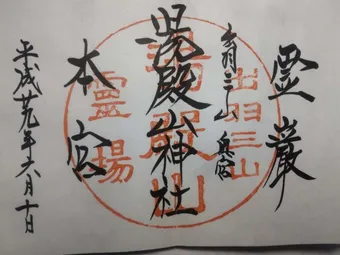 霊巌
出羽三山 奥宮
湯殿山神社
本宮
平成廿九年六月十日
出羽三山
湯殿山
靈場